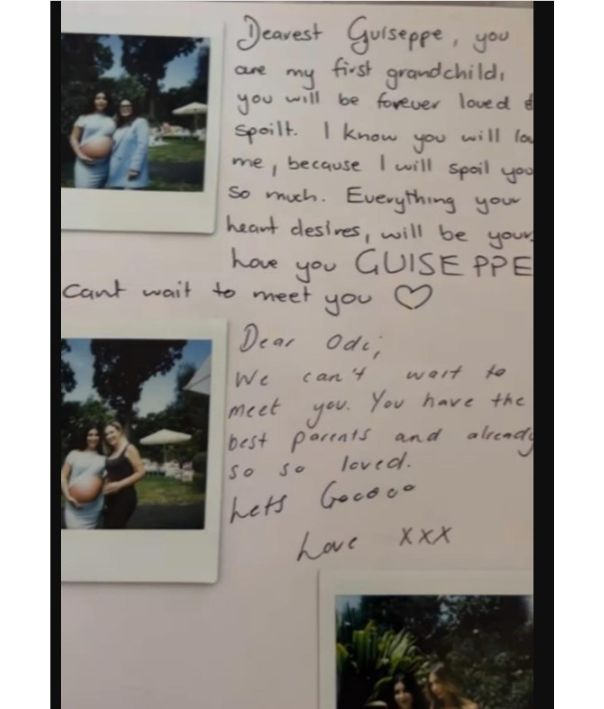 Dearest Guiseppe, you
are my first grandchild,
you will be forever loved &
spoilt. I know you will lo
me, because I will spoil you
so much. Everything your
heart desires, will be your
Love you GUISEPPE
Cant wait to meet you ♡
Dear Odi,
We can't wait to
meet you. You have the
best parents and already
so so loved.
Lets Gooooo
Love xxx